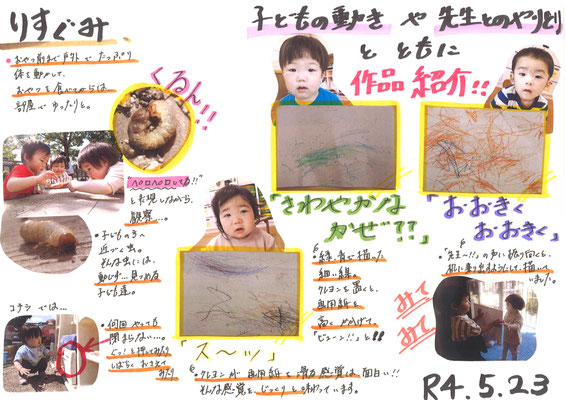 りすぐみ
・おやつ前まで戸外で たっぷり
体を動かして、
おやつを食べてからは、
部屋で ゆったりと。
くるん!!
"ペロペロしてる!!"
と表現しながら、
観察…
・子どもの方へ
近づく虫。
そんな虫には、
動じず…見つめる
子ども達。
コチラ では…
・何回 やっても
閉まらない…。
ぐっ!と押してみたり
しばらく おさえて
みたり
子どもの動き や 先生とのやりとり
と ともに
作品紹介!!
「さわやかな
かぜ??」
緑、青で描いた
細い線。
クレヨンを置くと、
画用紙を
高く かかげて
"ビューン!!"と!!
「おおきく
おおきく」
"先生~!!"の声に振り向くと、
机に乗り出すようにして、描いて
いました。
みて
みて
「ス~ッ」
クレヨンが 画用紙を 滑る感覚は、面白い!!
そんな感覚を、じっくりと味わっています。
R4.5.23